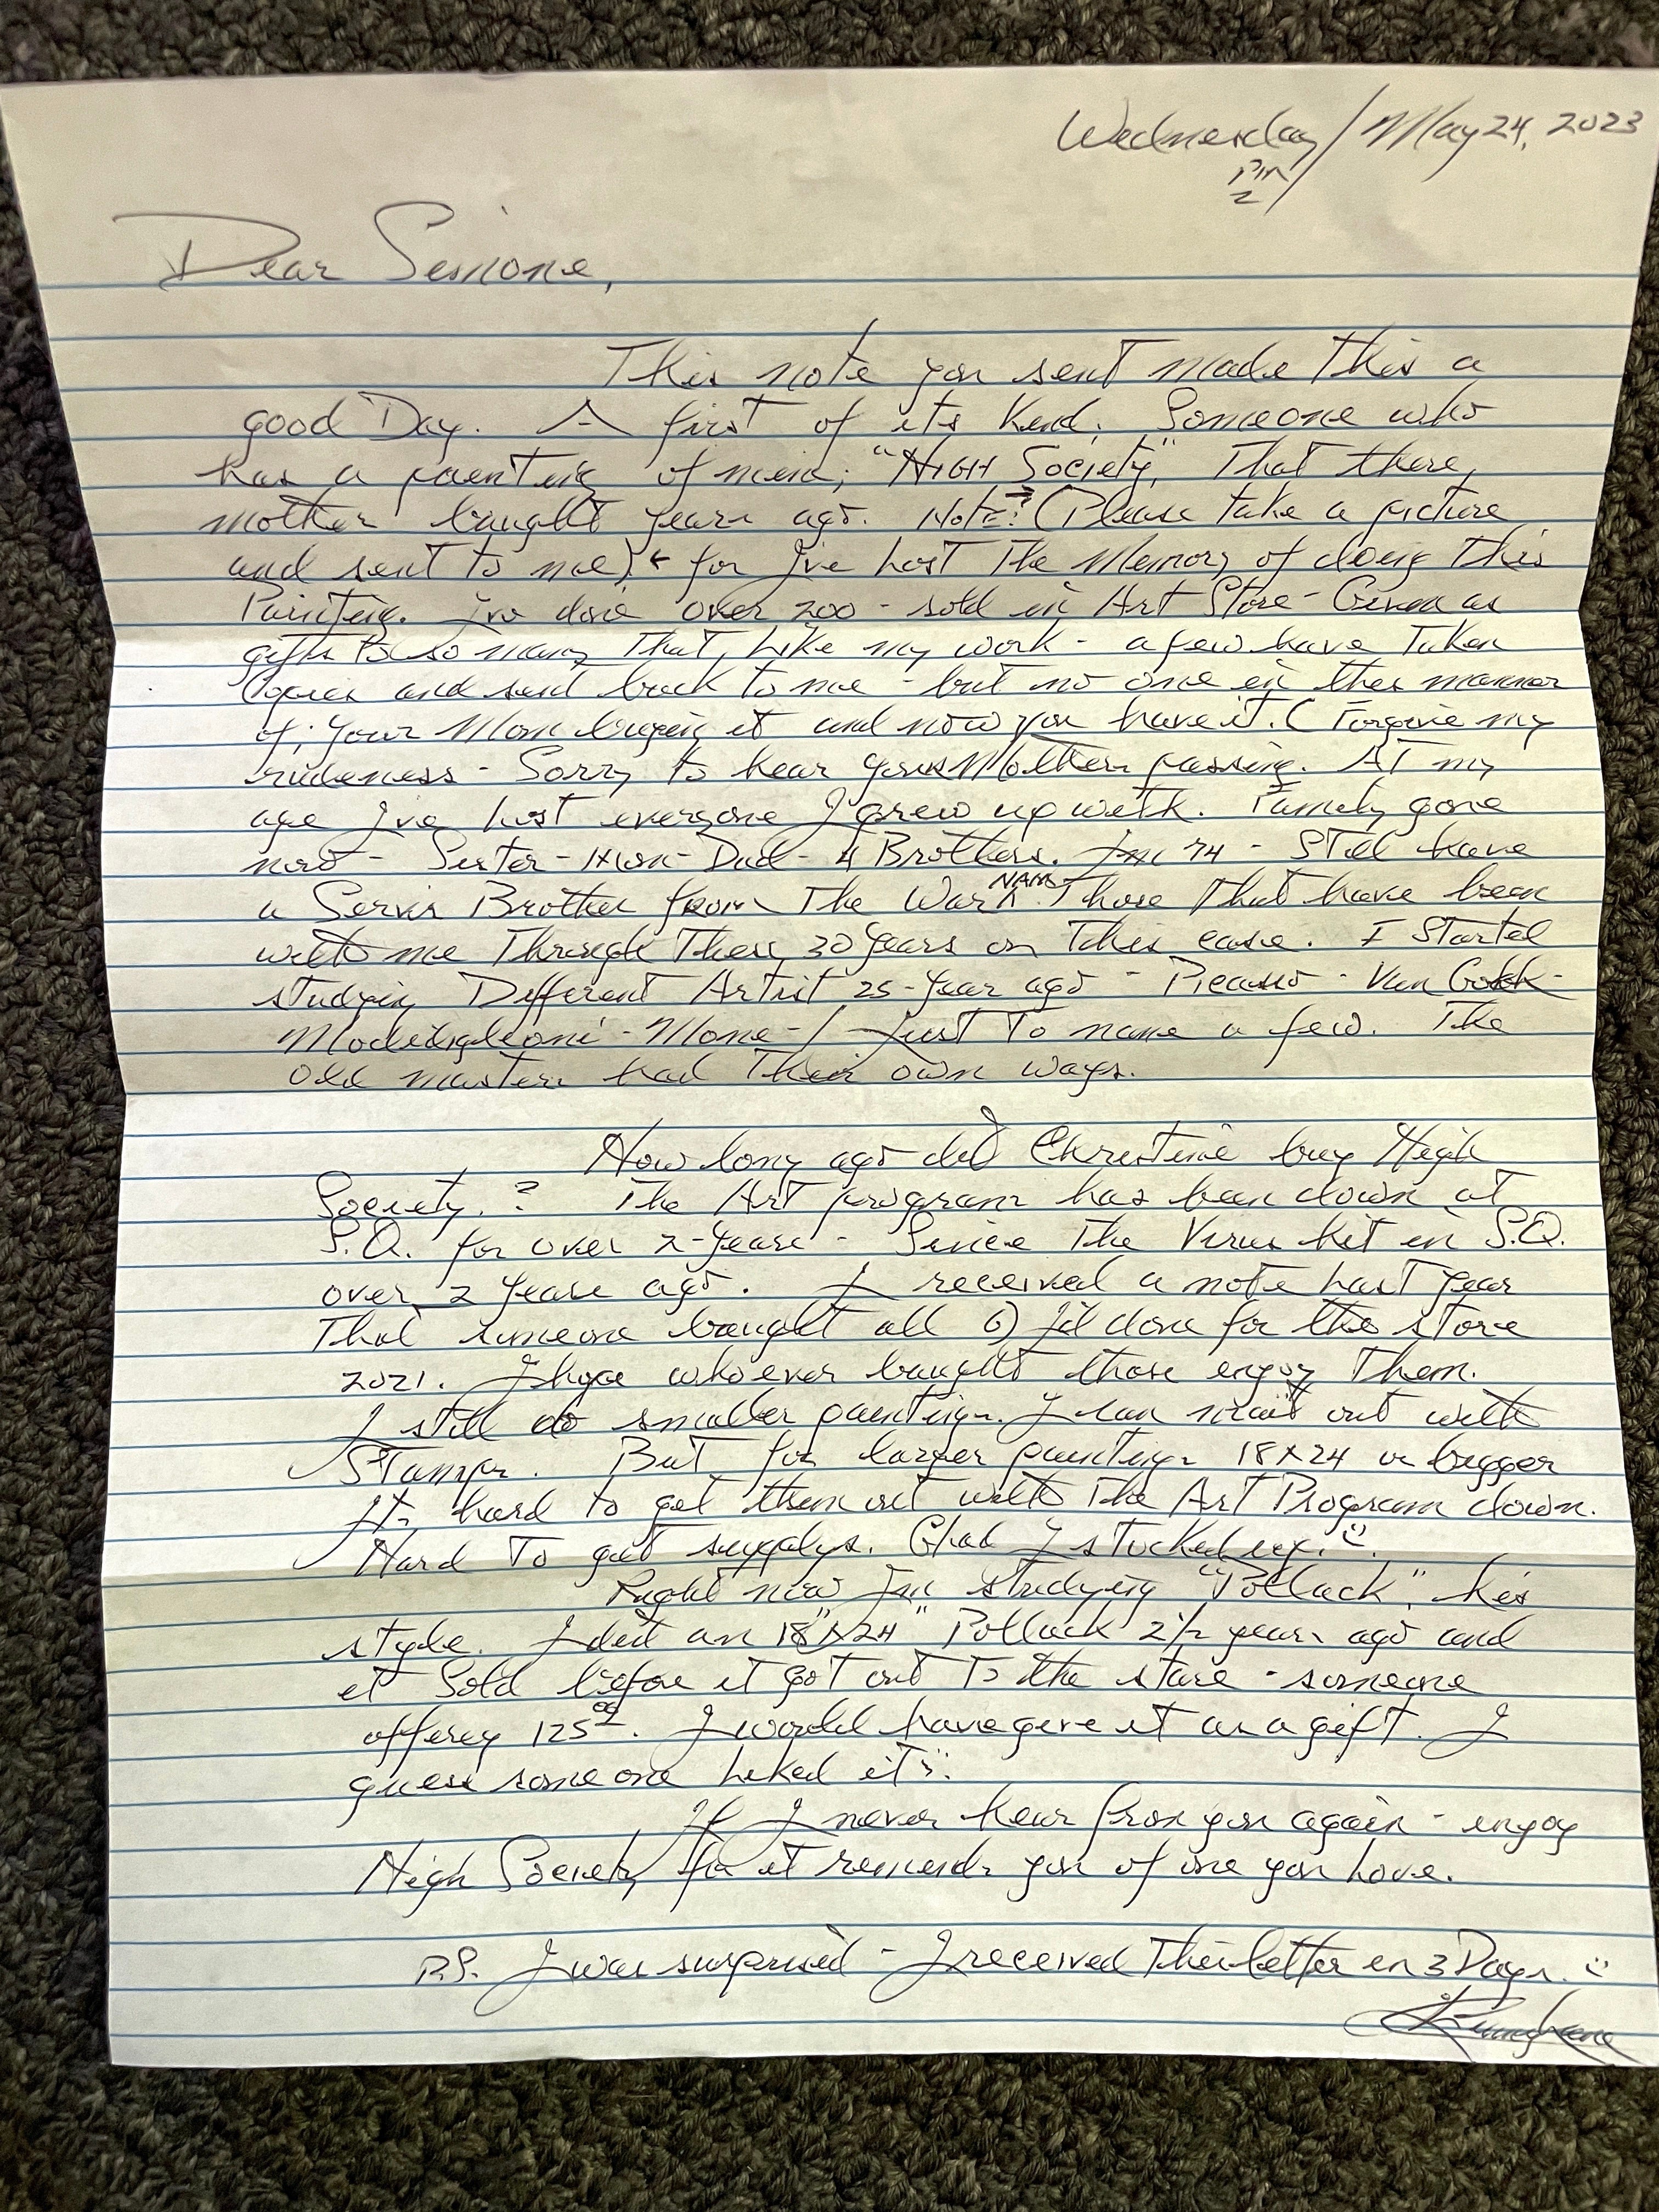 Wednesday / May 24, 2023
PM
2
Dear Simone,
This note you sent made this a
good Day. A first of its kind. Someone who
has a painting of mine; "HIGH Society," That there,
mother bought years ago. Note: → (Please take a picture
and sent to me) ← for I've Lost The Memory of doing This
Painting. I've done over 200 - sold in Art Store - Given as
gifts to so many That, Like my work - a few have Taken
Copies and send back to me - but no one in this manner
of; your Mom buying it and now you have it. (Forgive my
rudeness - Sorry to hear your Mother passing. AT my
age I've Lost everyone I grew up with. Family gone
now - Sister - Mom - Dad - 4 Brothers. I'm 74 - Still have
a Servis Brother from The War NAM. Those That have been
with me Through These 30 years on This case. I Started
studying Different Artist 25-year ago - Picasso - Van Gogh -
Modedigleoni - Mone - / Just To name a few. The
old masters had Their own ways.
How long ago did Christine buy High
Society.? The Art program has been down at
S.Q. for over 2-years - Since The Virus hit in S.Q.
over 2 years ago. I received a note Last year
That someone bought all 6) I'd done for the store
2021. I hope who ever bought those enjoy Them.
I still do smaller paintings. I can mail out with
STamps. But for larger paintings 18x24 or bigger
Its hard to get them out with The Art Program down.
Hard To get supplys. Glad I stocked up.
Right now I'm studying "Pollack", his
style. I did an 18"x24" Pollack 2½ years ago and
it Sold before it got out To the store - someone
offerey 125.00. I would have give it as a gift. I
guess some one Liked it.
If I never hear from you again - enjoy
High Society for it reminds you of one you Love.
P.S. I was surprised - I received This letter in 3 Days.